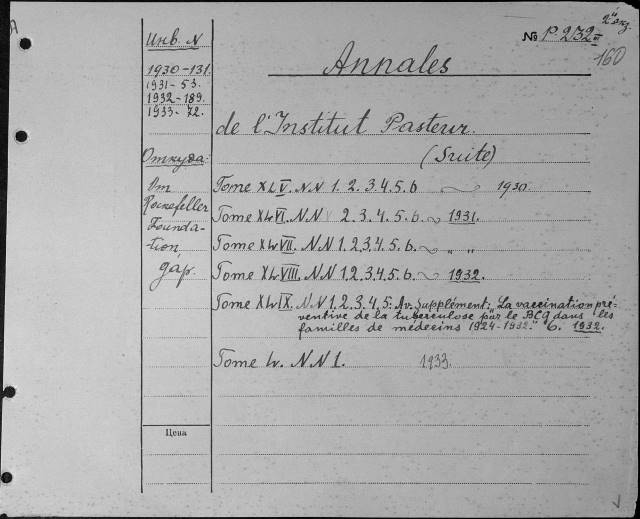 A
2ой экз.
№ P. 232 VI
160
Инв. N
1930-131.
1931-53.
1932-189.
1933-72.
Annales
de l'Institut Pasteur.
(Suite)
Откуда:
От
Rockefeller
Founda-
tion,
дар.
Tome XLV. N.N 1. 2. 3. 4. 5. 6 1930.
Tome XLVI. N N 2. 3. 4. 5. 6. 1931.
Tome XLVII. N.N 1. 2. 3. 4. 5. 6. " "
Tome XLVIII. N.N 1. 2. 3. 4. 5. 6. 1932.
Tome XLIX. N.N 1. 2. 3. 4. 5. Av. Supplément: "La vaccination pré-
ventive de la tuberculose par le BCG dans les
familles de médecins 1924-1932." 6. 1932.
Tome L. N.N 1. 1933.
Цена